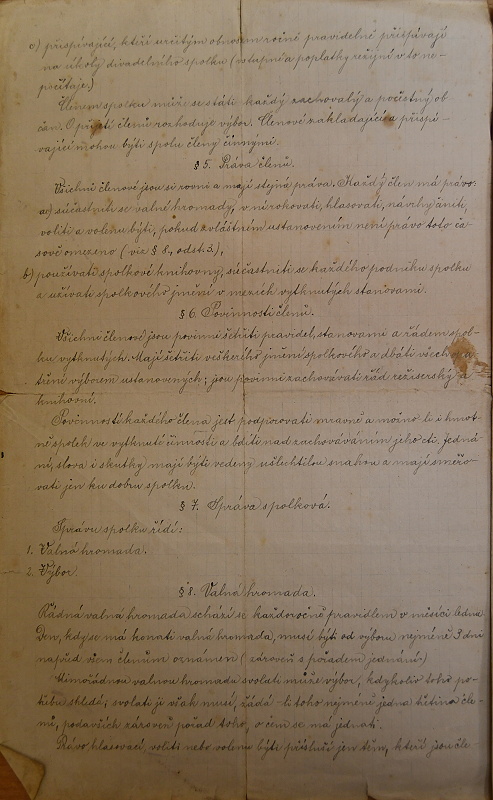 c) přispívající, kteří určitým obnosem ročně pravidelně přispívají
na úkoly divadelního spolku (vstupné a poplatky režijní v to ne-
počítaje.)
Členem spolku může se státi každý zachovalý a počestný ob-
čan. O přijetí členů rozhoduje výbor. Členové zakladající a přispí-
vající mohou býti spolu členy činnými.
§ 5. Práva členů.
Všichni členové jsou si rovni a mají stejná práva. Každý člen má právo:
a) súčastniti se valné hromady, v ní rokovati, hlasovati, návrhy činiti,
voliti a volenu býti, pokud zvláštním ustanovením není právo toto ča-
sově omezeno (viz § 8, odst. 3),
b) používati spolkové knihovny, súčastniti se každého podniku spolku
a užívati spolkového jmění v mezích vytknutých stanovami.
§ 6. Povinnosti členů.
Všichni členové jsou povinni šetřiti pravidel, stanovami a řádem spol-
ku vytknutých. Mají šetřiti veškerého jmění spolkového a dbáti všech opa-
tření výborem ustanovených; jsou povinni zachovávati řád režisérský a
knihovní.
Povinností každého člena jest podporovati mravně a možno-li i hmot-
ně spolek ve vytknuté činnosti a bdíti nad zachováváním jeho cti. Jedná-
ní, slova i skutky mají býti vedeny ušlechtilou snahou a mají směřo-
vati jen ku dobru spolku.
§ 7. Správa spolková.
Správu spolku řídí:
1. Valná hromada.
2. Výbor.
§ 8. Valná hromada.
Řádná valná hromada schází se každoročně pravidlem v měsíci lednu.
Den, kdy se má konati valná hromada, musí býti od výboru nejméně 3 dni
napřed všem členům oznámen (zároveň s pořadem jednání.)
Mimořádnou valnou hromadu svolati může výbor, kdykoliv toho po-
třebu shledá; svolati ji však musí, žádá-li toho nejméně jedna třetina čle-
nů, podavších zároveň pořad toho, o čem se má jednati.
Právo hlasovací, voliti nebo volenu býti přísluší jen těm, kteří jsou čle-